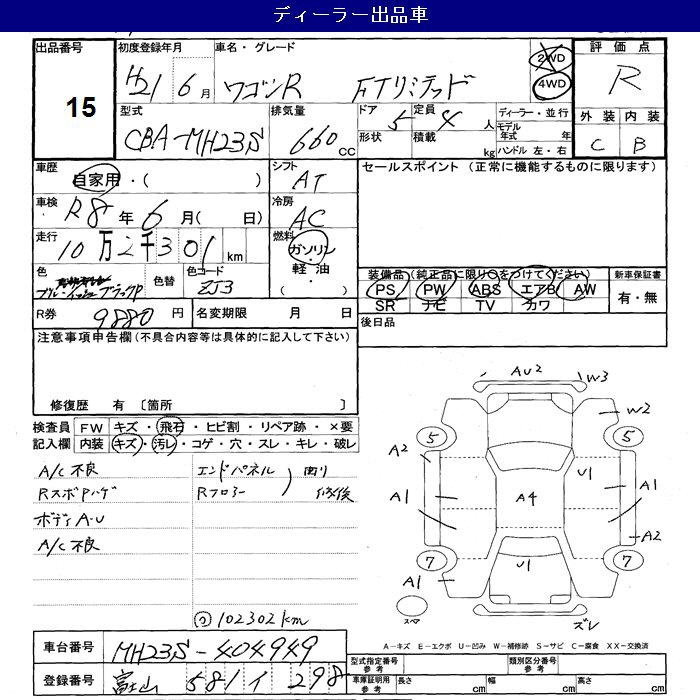 ディーラー出品車
出品番号 初度登録年月 車名・グレード 評価点
15 H21 6月 ワゴンR FTリミテッド 2WD 4WD R
型式 排気量 ドア 定員 ディーラー・並行 外装 内装
CBA-MH23S 660cc 5 4人 モデル年式 年 C B
形状 積載 kg ハンドル 左・右
車歴 自家用・( ) シフト AT セールスポイント (正常に機能するものに限ります)
車検 R8年6月( 日) 冷房 AC
走行 10万2千301km 燃料 ガソリン・軽油・( )
色 色替 色コード ZJ3 装備品(純正品に限り○をつけてください) 新車保証書
PS PW ABS エアB AW 有・無
SR ナビ TV カワ
R券 9880円 名変期限 月 日 後日品
注意事項申告欄(不具合内容等は具体的に記入して下さい)
修復歴 有 〔箇所 〕
検査員 FW キズ・飛石・ヒビ割・リペア跡・×要
記入欄 内装 キズ・汚レ・コゲ・穴・スレ・キレ・破レ
A/C不良 エンドパネル 曲り
RスポPハゲ Rフロアー 修後
ボディA-U
A/C不良
102302km
AU2 W3
W2
5 5
A2 U1
A1 A4 A1
A2
7 7
A1 U1
スペア ズレ
A-キズ E-エクボ U-凹み W-補修跡 S-サビ C-腐食 XX-交換済
車台番号 MH23S-404949 型式指定番号 参考 類別区分番号 参考
登録番号 富山 581 イ 298 車庫証明用 参考 長さ cm 幅 cm 高さ cm